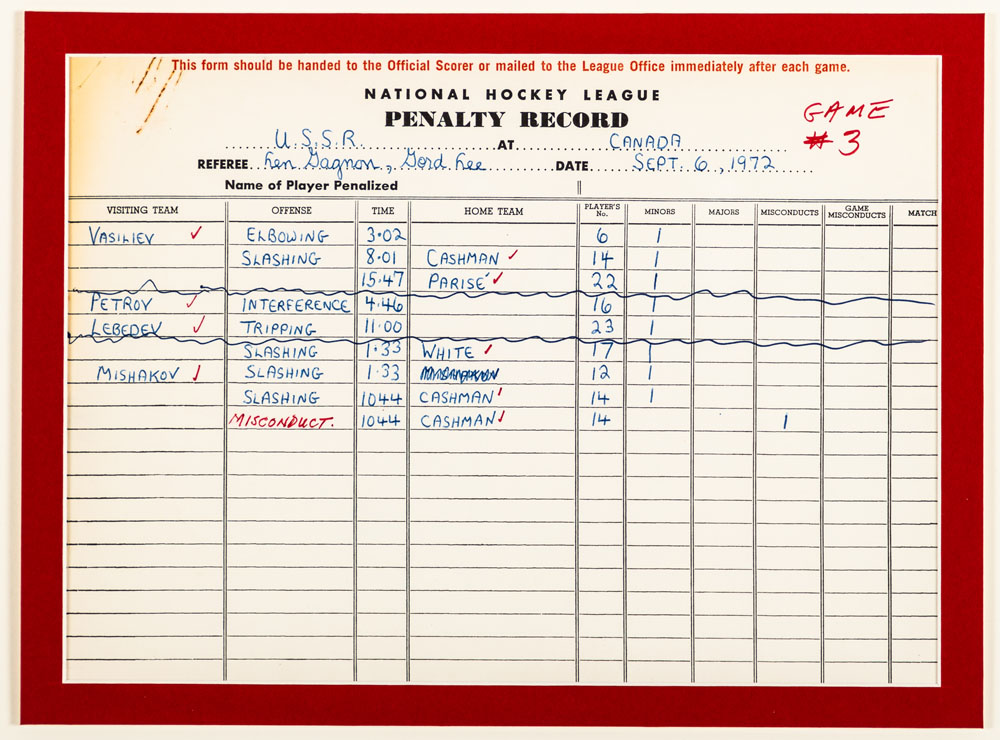 This form should be handed to the Official Scorer or mailed to the League Office immediately after each game.
NATIONAL HOCKEY LEAGUE
GAME
PENALTY RECORD
# 3
U.S.S.R. AT CANADA
REFEREE Len Gagnon, Gord Lee DATE SEPT. 6, 1972
Name of Player Penalized
VISITING TEAM OFFENSE TIME HOME TEAM PLAYER'S No. MINORS MAJORS MISCONDUCTS GAME MISCONDUCTS MATCH
VASILIEV ✓ ELBOWING 3·02 6 1
SLASHING 8·01 CASHMAN ✓ 14 1
15·47 PARISÉ ✓ 22 1
PETROV ✓ INTERFERENCE 4·46 16 1
LEBEDEV ✓ TRIPPING 11·00 23 1
SLASHING 1·33 WHITE ✓ 17 1
MISHAKOV ✓ SLASHING 1·33 MISHAKOV 12 1
SLASHING 1044 CASHMAN ✓ 14 1
MISCONDUCT. 1044 CASHMAN ✓ 14 1